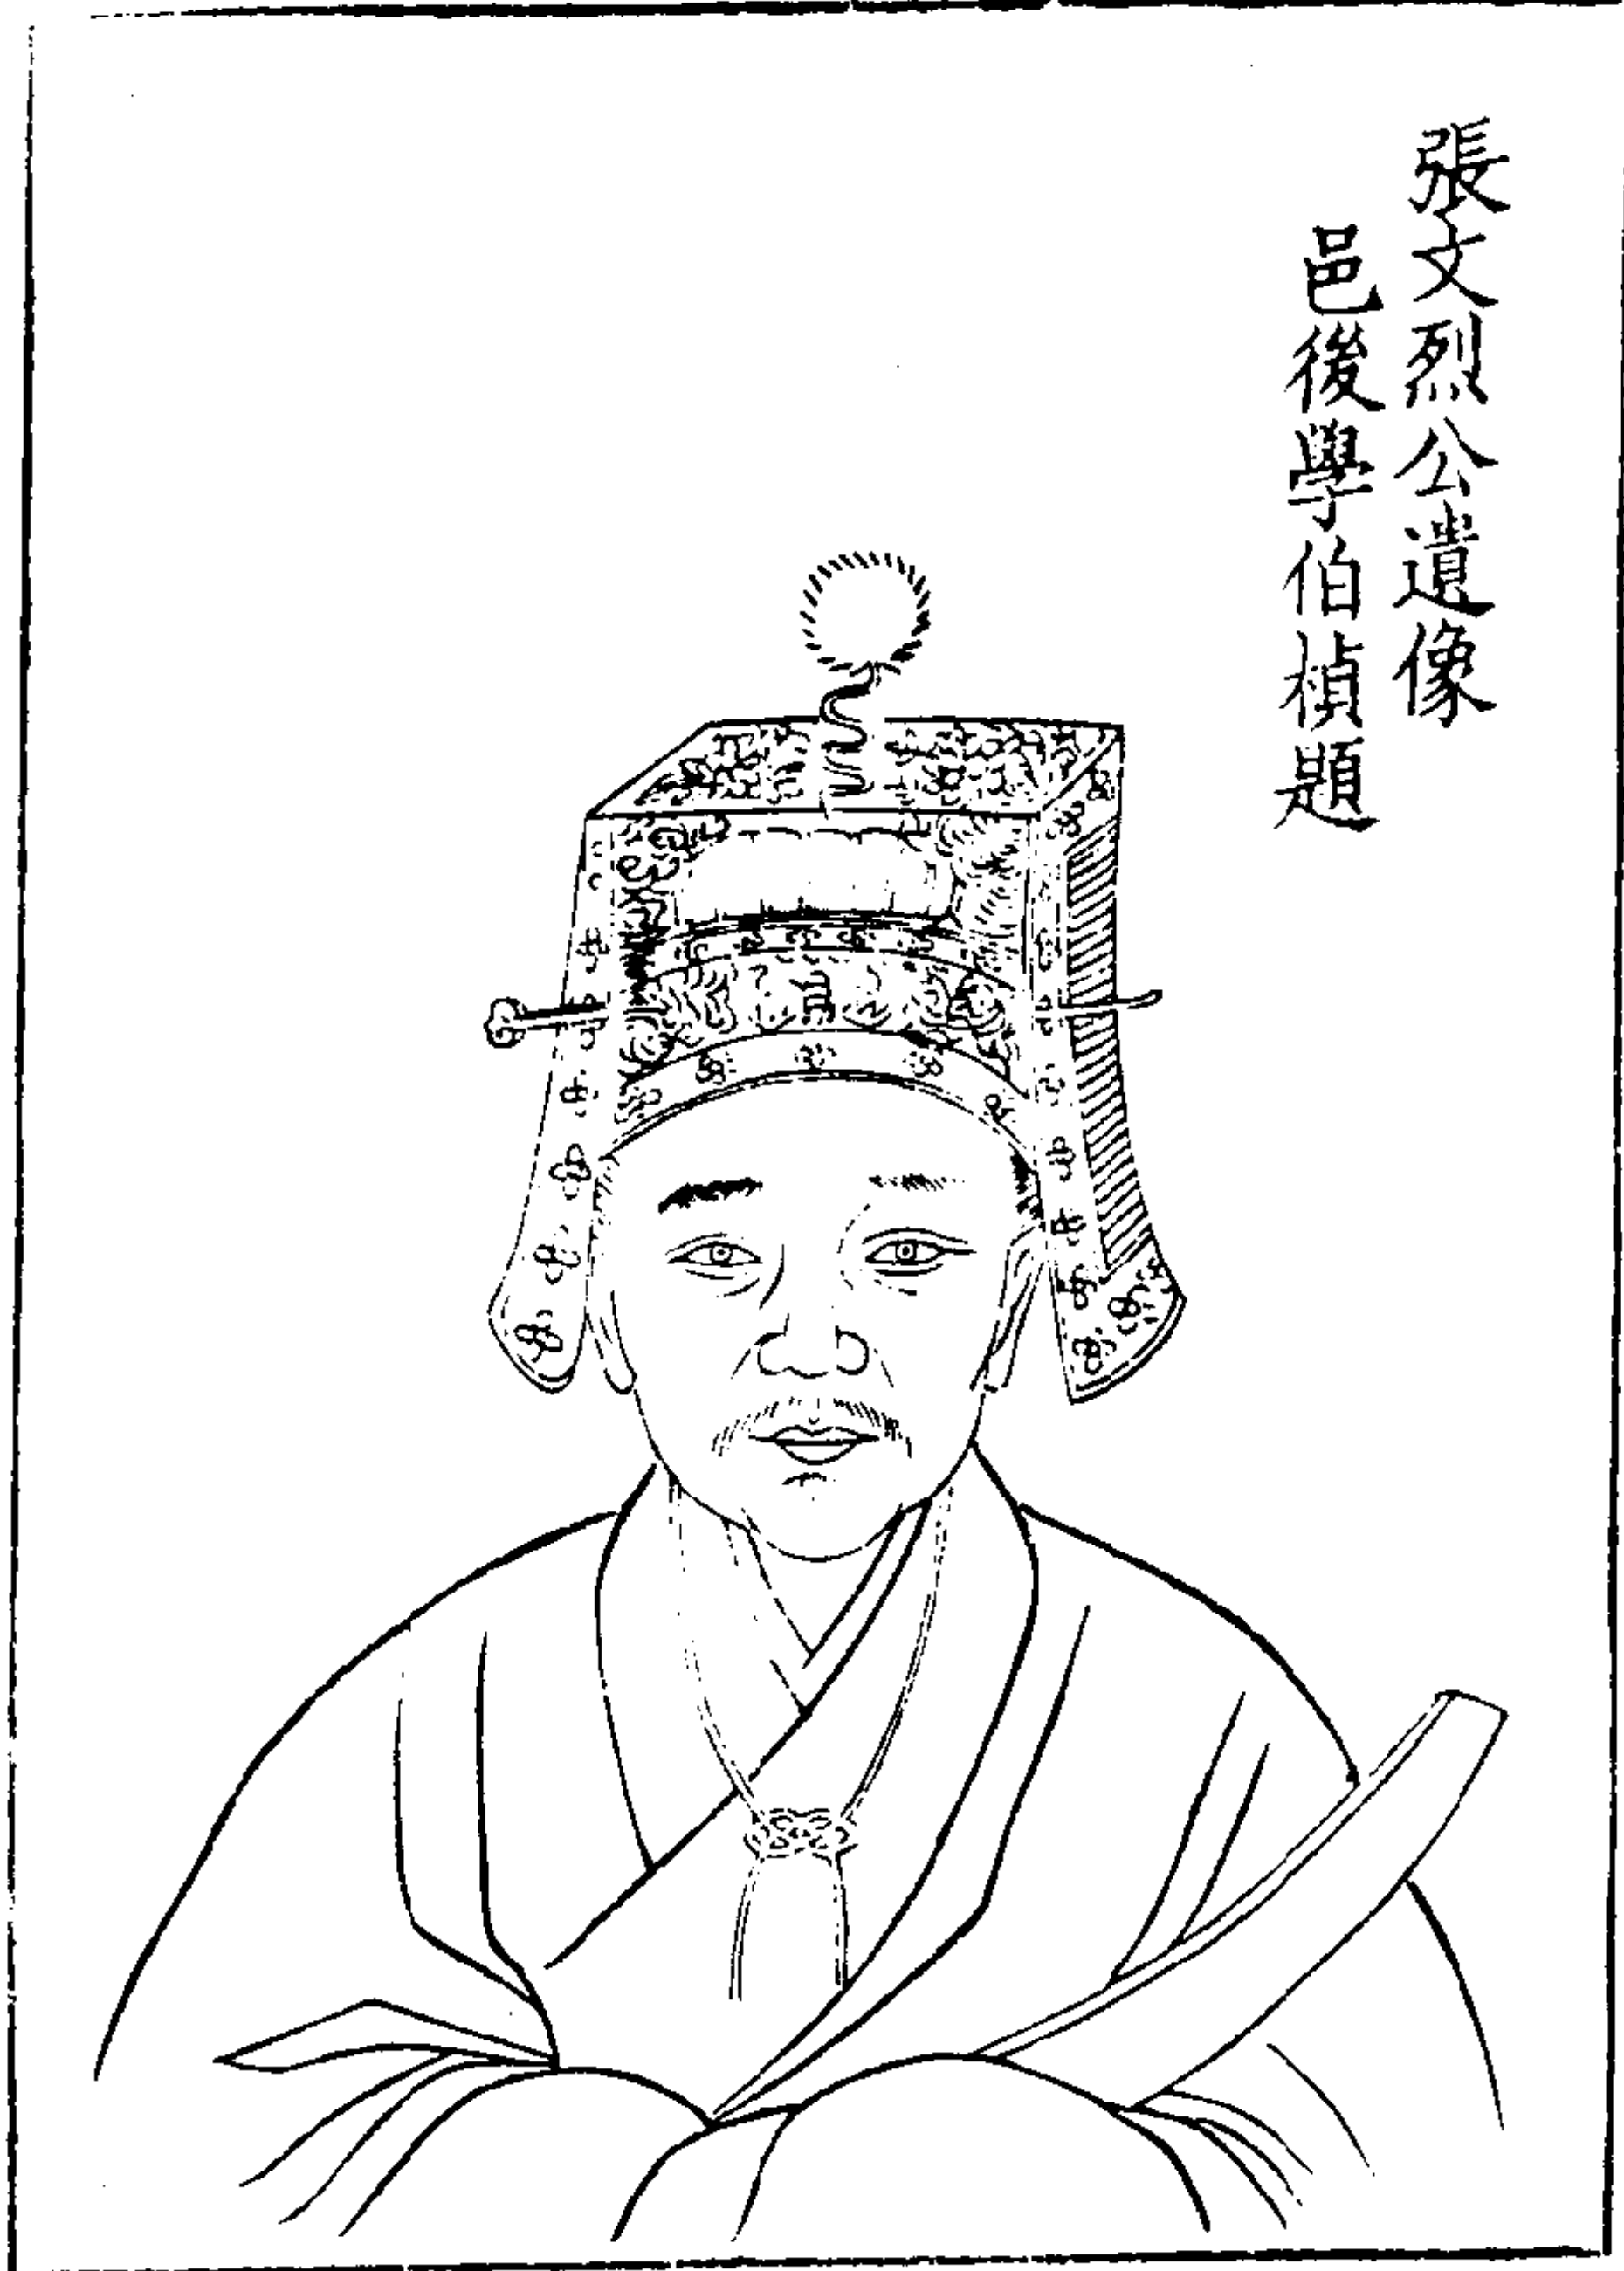 張文烈公遺像
邑後學伯楨題